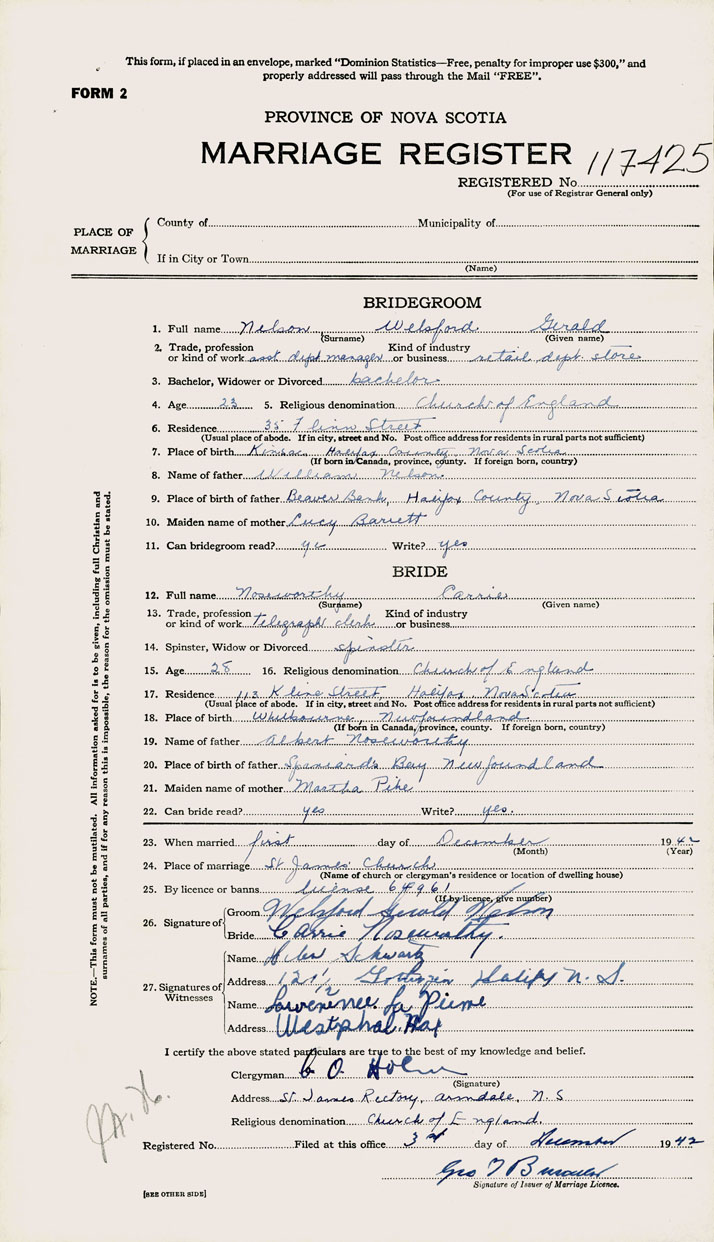 This form, if placed in an envelope, marked "Dominion Statistics—Free, penalty for improper use $300," and
properly addressed will pass through the Mail "FREE".
FORM 2
PROVINCE OF NOVA SCOTIA
MARRIAGE REGISTER 117425
REGISTERED No.
(For use of Registrar General only)
PLACE OF MARRIAGE
County of Municipality of
If in City or Town
(Name)
BRIDEGROOM
1. Full name Nelson Welsford Gerald
(Surname) (Given name)
2. Trade, profession Kind of industry
or kind of work asst dept manager or business retail dept. store
3. Bachelor, Widower or Divorced bachelor
4. Age 23 5. Religious denomination Church of England
6. Residence 35 Flinn Street
(Usual place of abode. If in city, street and No. Post office address for residents in rural parts not sufficient)
7. Place of birth Kinsac, Halifax County, Nova Scotia
(If born in Canada, province, county. If foreign born, country)
8. Name of father William Nelson
9. Place of birth of father Beaver Bank, Halifax County, Nova Scotia
10. Maiden name of mother Lucy Barrett
11. Can bridegroom read? yes Write? yes
BRIDE
12. Full name Noseworthy Carrie
(Surname) (Given name)
13. Trade, profession Kind of industry
or kind of work telegraph clerk or business
14. Spinster, Widow or Divorced spinster
15. Age 28 16. Religious denomination Church of England
17. Residence 113 Kline Street, Halifax, Nova Scotia
(Usual place of abode. If in city, street and No. Post office address for residents in rural parts not sufficient)
18. Place of birth Whitbourne, Newfoundland
(If born in Canada, province, county. If foreign born, country)
19. Name of father Albert Noseworthy
20. Place of birth of father Spaniard's Bay Newfoundland
21. Maiden name of mother Martha Pike
22. Can bride read? yes Write? yes.
23. When married first day of December 1942
(Month) (Year)
24. Place of marriage St James' Church
(Name of church or clergyman's residence or location of dwelling house)
25. By licence or banns license 64961
(If by licence, give number)
26. Signature of
Groom Welsford Gerald Nelson
Bride Carrie Noseworthy.
27. Signatures of Witnesses
Name Schwartz
Address 121½ Gottingen Halifax N. S.
Name Lawrence La Pierre
Address Westphal. Hfx
I certify the above stated particulars are true to the best of my knowledge and belief.
Clergyman C. O. Holm
(Signature)
Address St. James Rectory, Armdale, N. S
Religious denomination Church of England.
Registered No. Filed at this office 3rd day of December 1942
Geo T
Signature of Issuer of Marriage Licence.
[SEE OTHER SIDE]
NOTE.—This form must not be mutilated. All information asked for is to be given, including full Christian and
surnames of all parties, and if for any reason this is impossible, the reason for the omission must be stated.